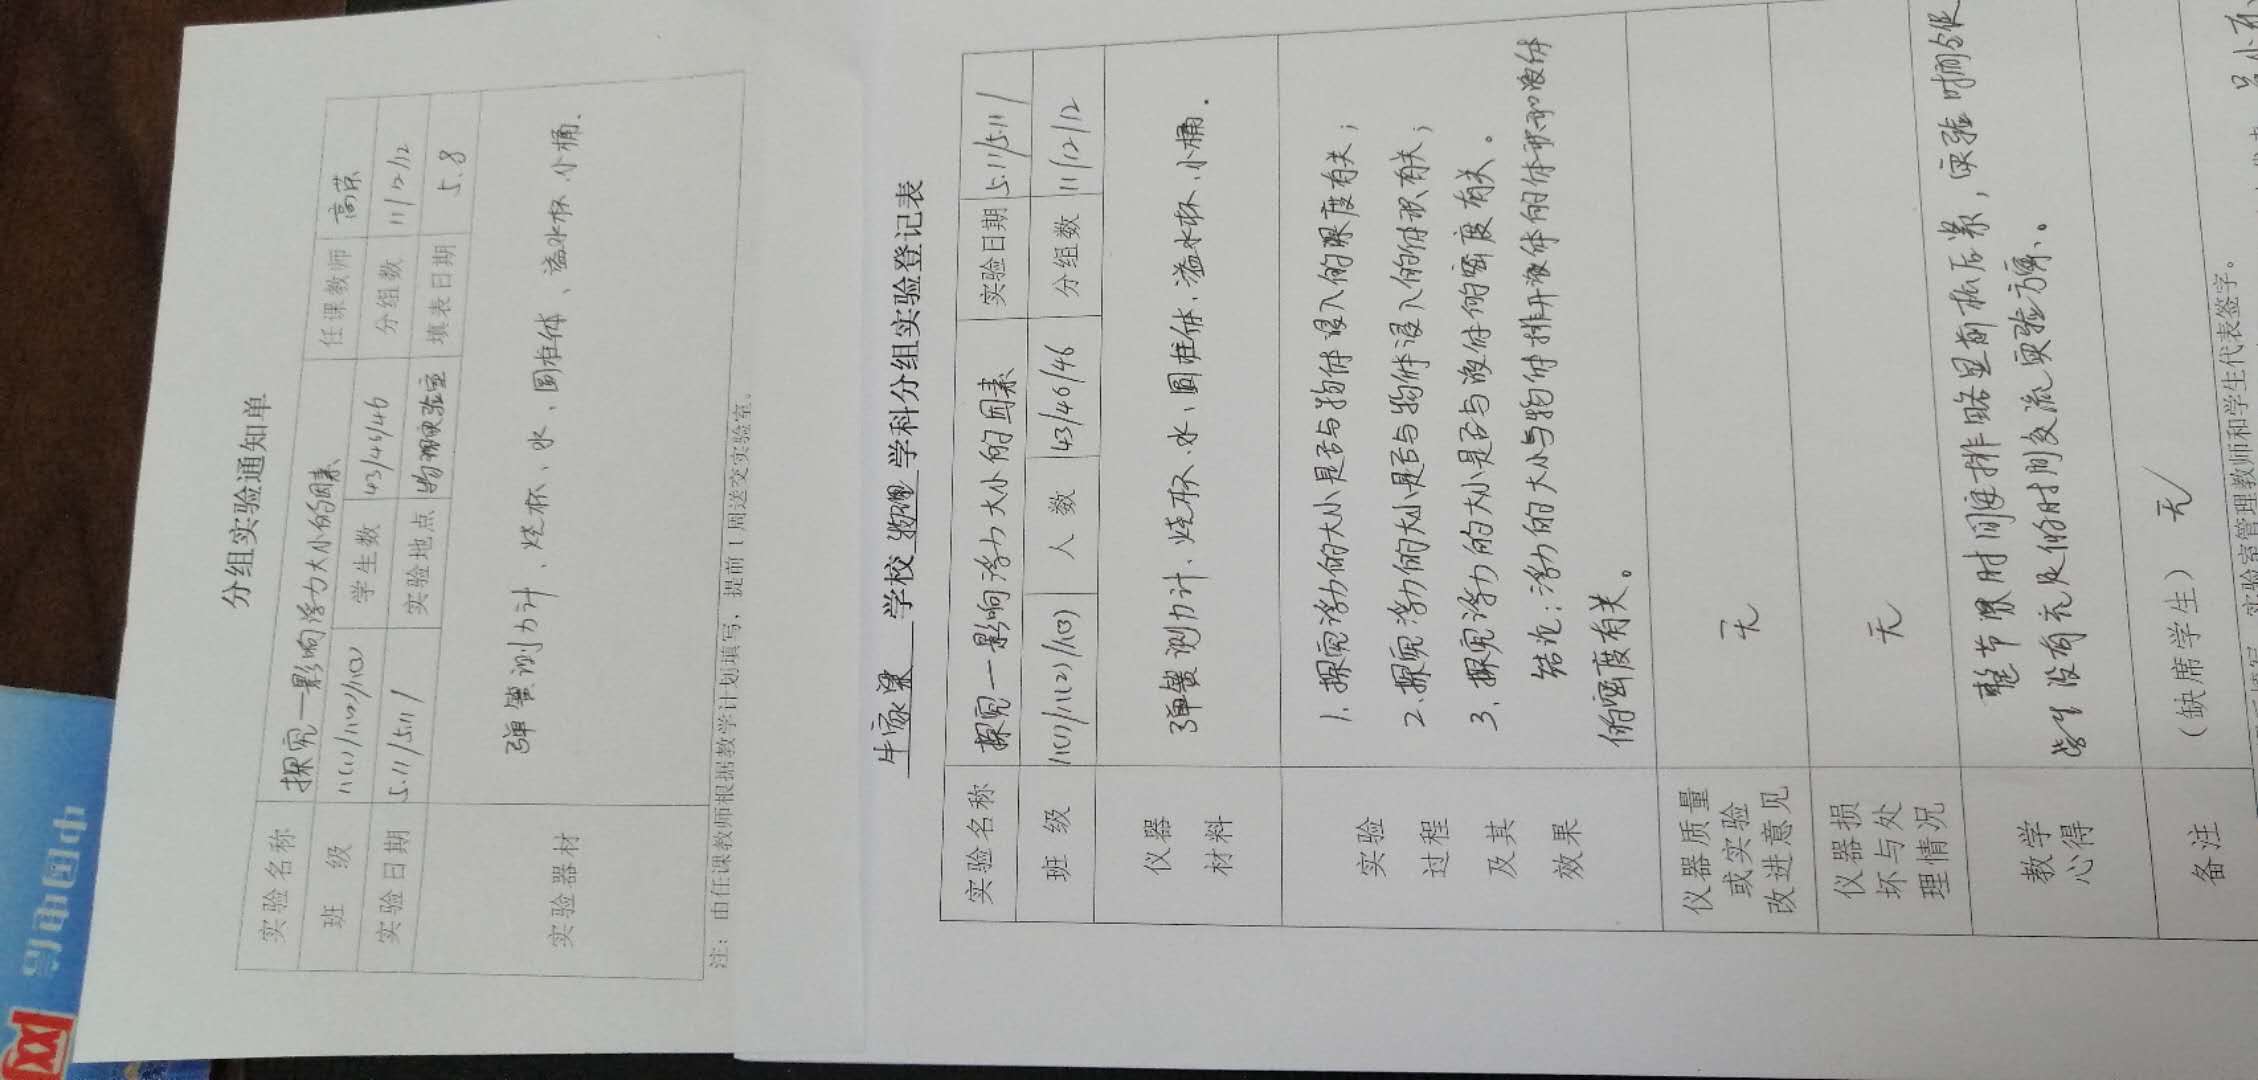 中国电信
网
分组实验通知单
实验名称 探究一影响浮力大小的因素 任课教师 高京
班 级 11(1)/11(2)/11(3) 学生数 43/46/46 分组数 11/12/12
实验日期 5.11/5.11/ 实验地点 物理实验室 填表日期 5.8
实验器材 弹簧测力计、烧杯、水、圆柱体、溢水杯、小桶.
注：由任课教师根据教学计划填写，提前1周送交实验室。
牛家梁 学校 物理 学科分组实验登记表
实验名称 探究一影响浮力大小的因素 实验日期 5.11/5.11/
班 级 11(1)/11(2)/11(3) 人 数 43/46/46 分组数 11/12/12
仪器
材料
弹簧测力计、烧杯、水、圆柱体、溢水杯、小桶.
实验
过程
及其
效果
1.探究浮力的大小是否与物体浸入的深度有关；
2.探究浮力的大小是否与物体浸入的体积有关；
3.探究浮力的大小是否与液体的密度有关。
结论：浮力的大小与物体排开液体的体积和液体
的密度有关。
仪器质量
或实验
改进意见
无
仪器损
坏与处
理情况
无
教学
心得
整节课时间安排略显前松后紧，实验时拥挤
学生没有充足的时间交流实验方案。
备注
（缺席学生） 无
实验室管理教师和学生代表签字。